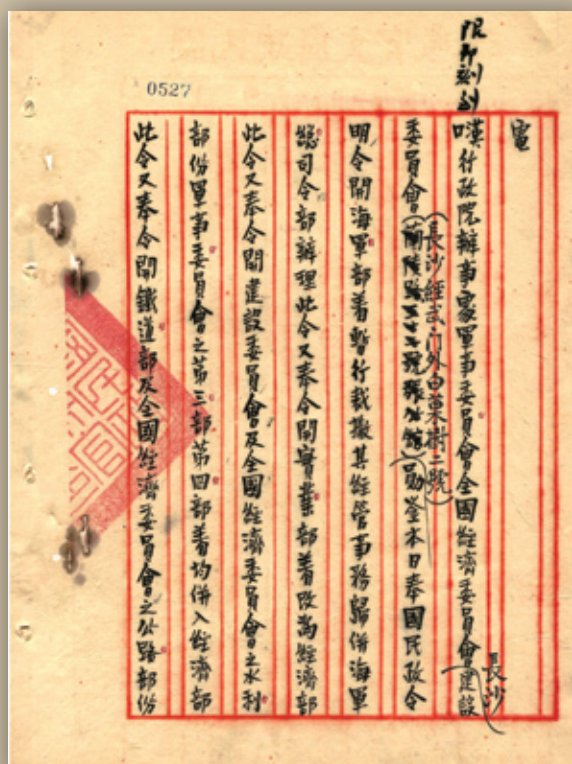 0527
限即刻到
電
漢口行政院辦事處軍事委員會全國經濟委員會建設
長沙
委員會(蘭陵路三十七號張公館)勛鑒本日奉國民政令
(長沙經武門外白菓樹二號)
明令開海軍部着暫行裁撤其經管事務歸併海軍
總司令部辦理此令又奉令開實業部着改為經濟部
此令又奉令開建設委員會及全國經濟委員會之水利
部份軍事委員會之第三部第四部着均併入經濟部
此令又奉令開鐵道部及全國經濟委員會之公路部份